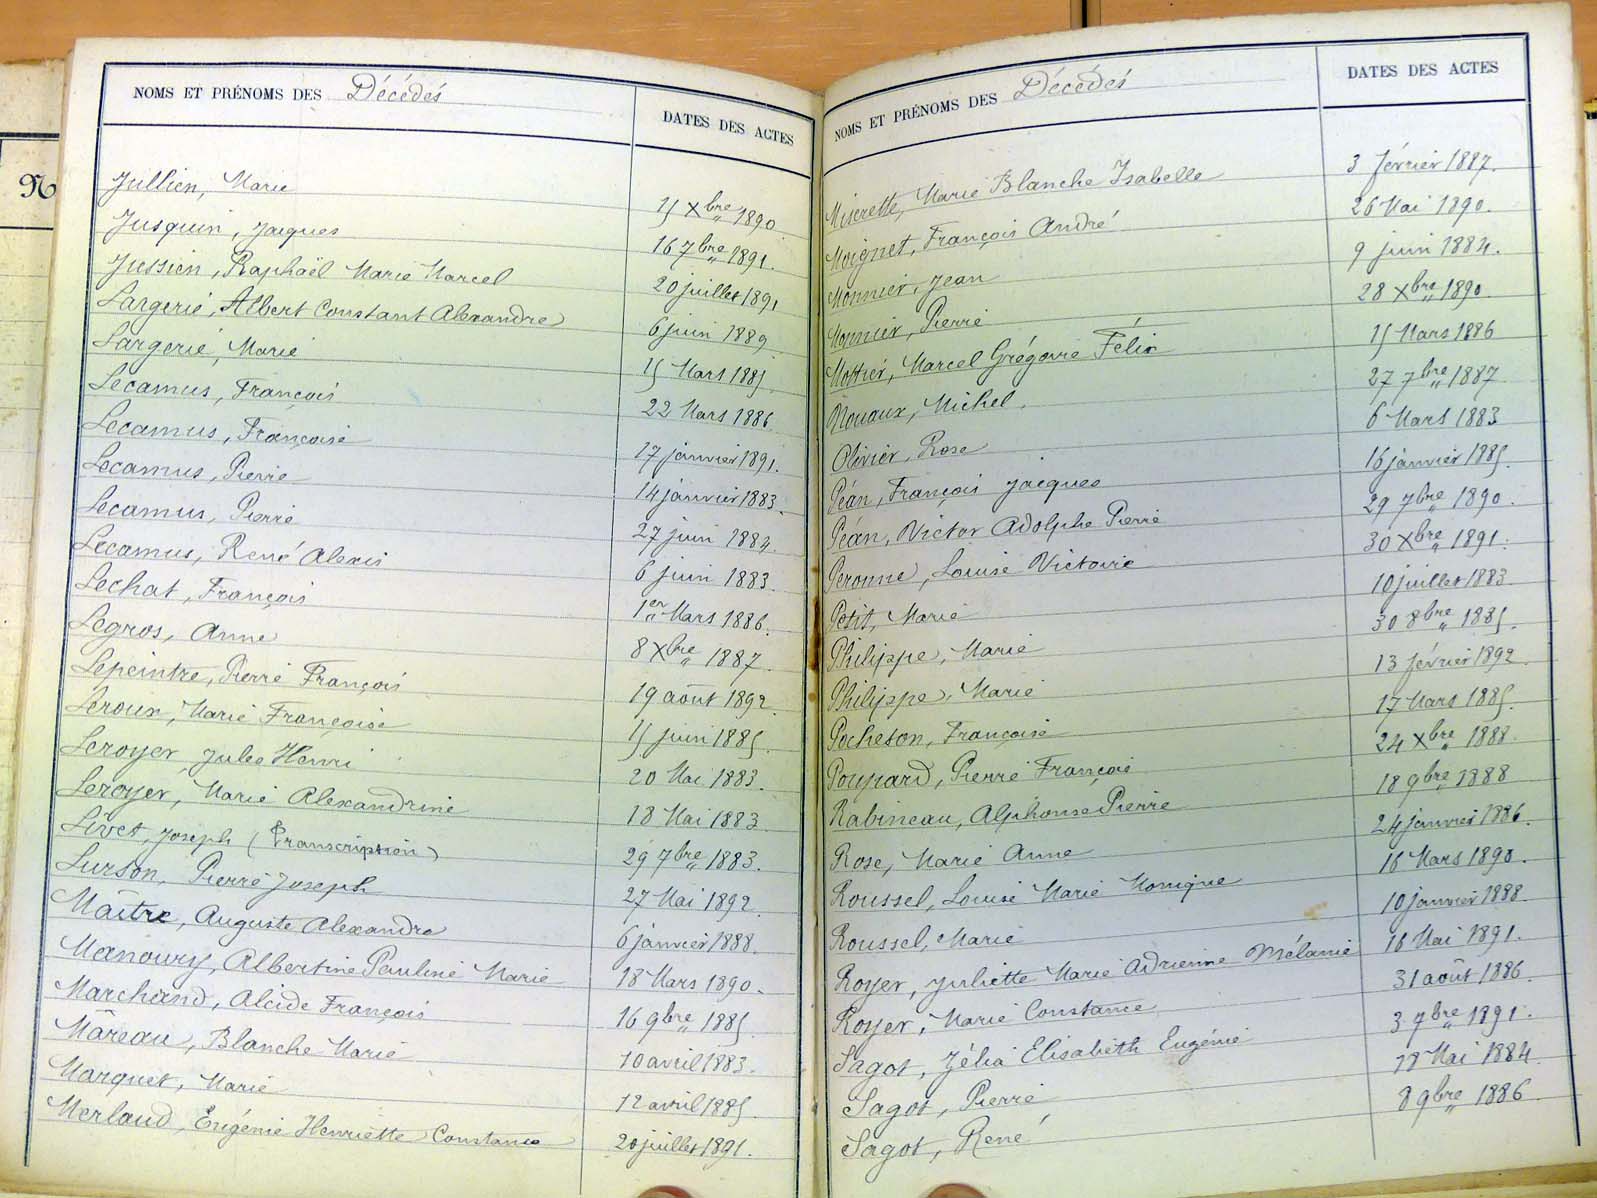 NOMS ET PRÉNOMS DES Décédés DATES DES ACTES
Jullien, Marie 15 Xbre 1890
Jusquin, Jacques 16 7bre 1891.
Jussien, Raphaël Marie Marcel 20 juillet 1891
Largerie, Albert Constant Alexandre 6 juin 1889
Largerie, Marie 15 Mars 1885.
Lecamus, François 22 Mars 1886.
Lecamus, Françoise 17 janvier 1891.
Lecamus, Pierre 14 janvier 1883.
Lecamus, Pierre 27 juin 1884.
Lecamus, René Alexis 6 juin 1883.
Lechat, François 1er Mars 1886.
Legros, Anne 8 Xbre 1887.
Lepeintre, Pierre François 19 août 1892.
Leroux, Marie Françoise 15 juin 1885.
Leroyer, Jules Henri 20 Mai 1883.
Leroyer, Marie Alexandrine 18 Mai 1883.
Livet, Joseph (Transcription) 29 7bre 1883.
Lurson, Pierre Joseph 27 Mai 1892.
Maître, Auguste Alexandre 6 janvier 1888.
Manoury, Albertine Pauline Marie 18 Mars 1890.
Marchand, Alcide François 16 9bre 1885.
Mâreau, Blanche Marie 10 avril 1883.
Marquet, Marie 12 avril 1885.
Merlaud, Eugénie Henriette Constance 20 juillet 1891.
NOMS ET PRÉNOMS DES Décédés DATES DES ACTES
Miserette, Marie Blanche Isabelle 3 février 1887.
Moignet, François André 26 Mai 1890.
Monnier, Jean 9 juin 1884.
Monnier, Pierre 28 Xbre 1890.
Mottier, Marcel Grégoire Félix 15 Mars 1886
Nouaux, Michel. 27 7bre 1887
Olivier, Rose 6 Mars 1883
Péan, François Jacques 16 janvier 1885.
Péan, Victor Adolphe Pierre 29 7bre 1890.
Peronne, Louise Victoire 30 Xbre 1891.
Petit, Marie 10 juillet 1883
Philippe, Marie 30 8bre 1885.
Philippe, Marie 13 février 1892
Pocheton, Françoise 17 Mars 1885.
Poupard, Pierre François 24 Xbre 1888
Rabineau, Alphonse Pierre 18 9bre 1888
Rose, Marie Anne 24 janvier 1886.
Roussel, Louise Marie Monique 16 Mars 1890.
Roussel, Marie 10 janvier 1888.
Royer, Juliette Marie Adrienne Mélanie 16 Mai 1891.
Royer, Marie Constance 31 août 1886.
Sagot, Zélia Elisabeth Eugénie 3 7bre 1891.
Sagot, Pierre 18 Mai 1884.
Sagot, René 8 9bre 1886